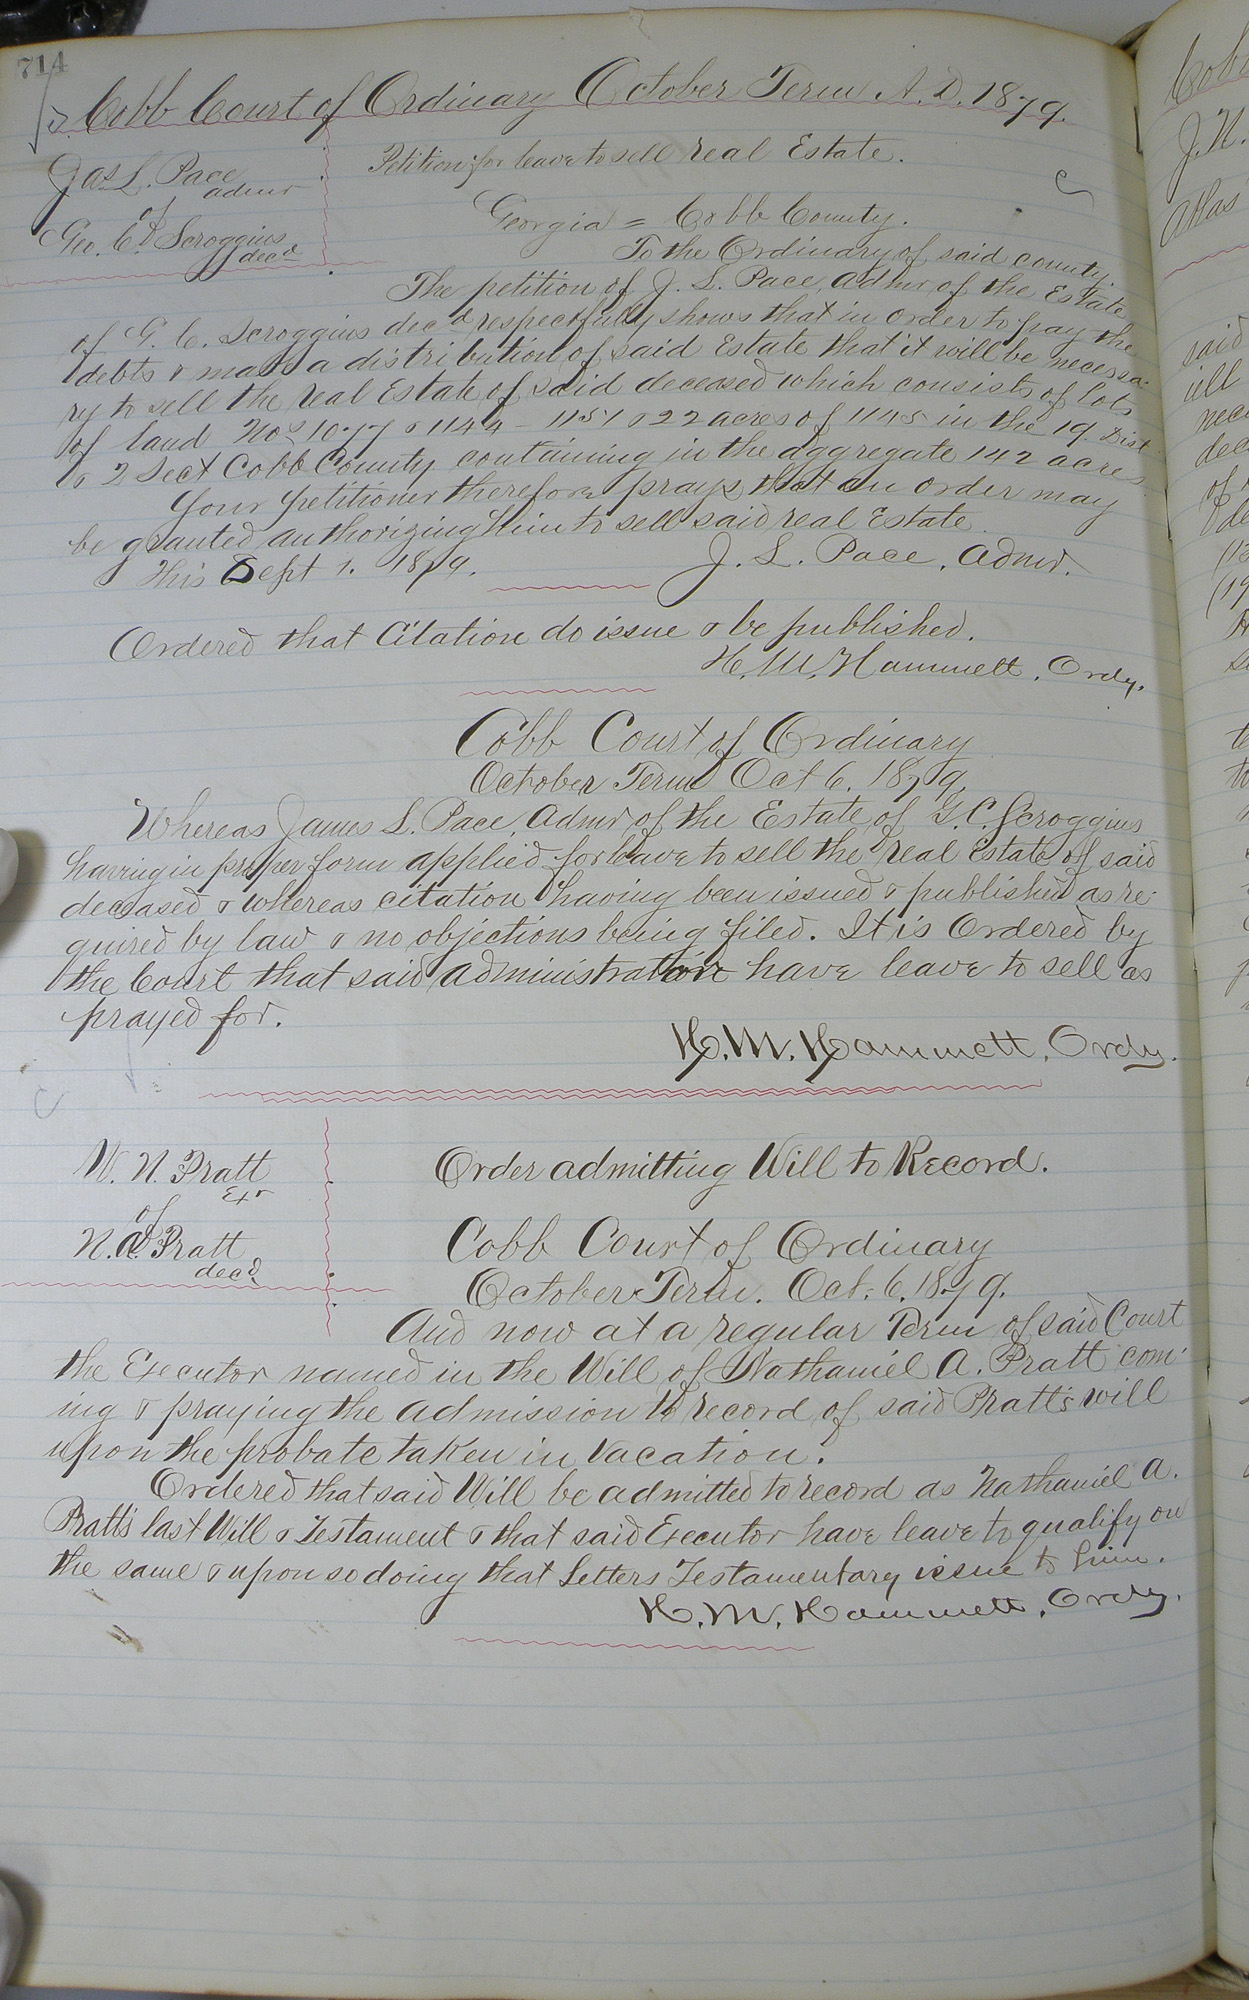 714
Cobb Court of Ordinary October Term A.D. 1879.
Jas L. Pace
admr
of
Geo. C. Scroggins
decd
Petition for leave to sell real Estate.
Georgia = Cobb County.
To the Ordinary of said county
The petition of J. L. Pace, Admr of the Estate
of G. C. Scroggins decd respectfully shows that in order to pay the
debts & make a distribution of said Estate that it will be necessa-
ry to sell the real Estate of said deceased which consists of lots
of land Nos 1077 & 1144 - 1151 & 22 acres of 1145 in the 19. Dist
& 2 Sect Cobb County containing in the aggregate 142 acres
Your petitioner therefore prays that an order may
be granted authorizing him to sell said real Estate.
This Sept 1. 1879.
J. L. Pace, Admr.
Ordered that Citation do issue & be published.
H. M. Hammett, Ordy.
Cobb Court of Ordinary
October Term Oct 6. 1879.
Whereas James L. Pace, Admr of the Estate of G. C. Scroggins
having in proper form applied for leave to sell the real Estate of said
deceased & whereas citation having been issued & published as re-
quired by law & no objections being filed. It is Ordered by
the Court that said administrator have leave to sell as
prayed for.
H. M. Hammett, Ordy.
W. N. Pratt
Exr
of
N. A. Pratt
decd.
Order admitting Will to Record.
Cobb Court of Ordinary
October Term. Oct. 6. 1879.
And now at a regular Term of said Court
the Executor named in the Will of Nathaniel A. Pratt com-
ing & praying the admission to record of said Pratt's will
upon the probate taken in vacation.
Ordered that said Will be admitted to record as Nathaniel A.
Pratt's last Will & Testament & that said Executor have leave to qualify on
the same & upon so doing that Letters Testamentary issue to him.
H. M. Hammett, Ordy.
Cob
J. N.
said
nec
dec